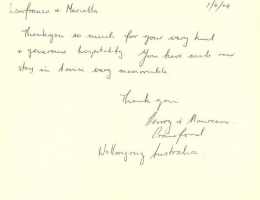 Lanfranco & Marcella 1/6/04
Thankyou so much for your very kind
& generous hospitality You have made our
stay in Assisi very memorable.
Thank you
Henry & Maureen
Crawford
Wollongong Australia.